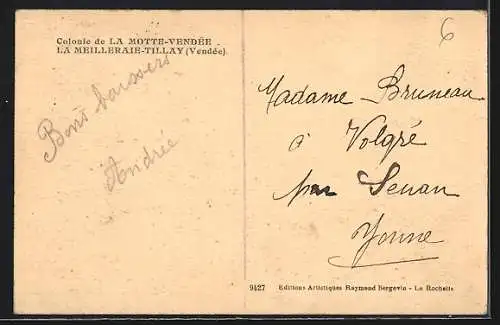 Colonie de LA MOTTE-VENDÉE
LA MEILLERAIE-TILLAY (Vendée)
Bons baisers
Andrée
6
Madame Bruneau
à Volgré
par Senan
Yonne
9427 Editions Artistiques Raymond Bergevin - La Rochelle